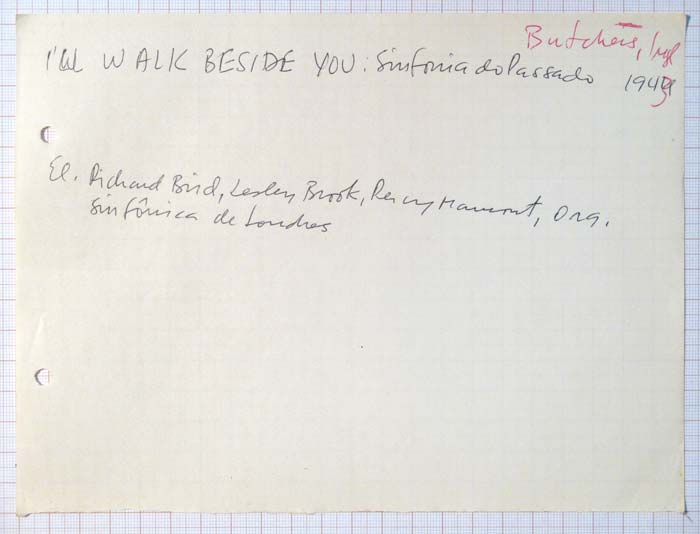 Butchers, Ingl
I'll WALK BESIDE YOU: Sinfonia do Passado 1943
El. Richard Bird, Lesley Brook, Percy Marmont, Orq.
Sinfônica de Londres